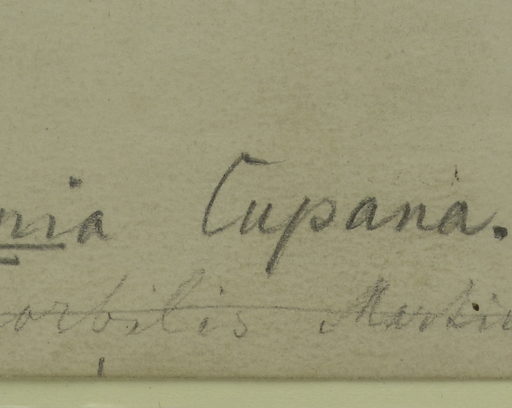 nia Cupana.
orbilis Martiu